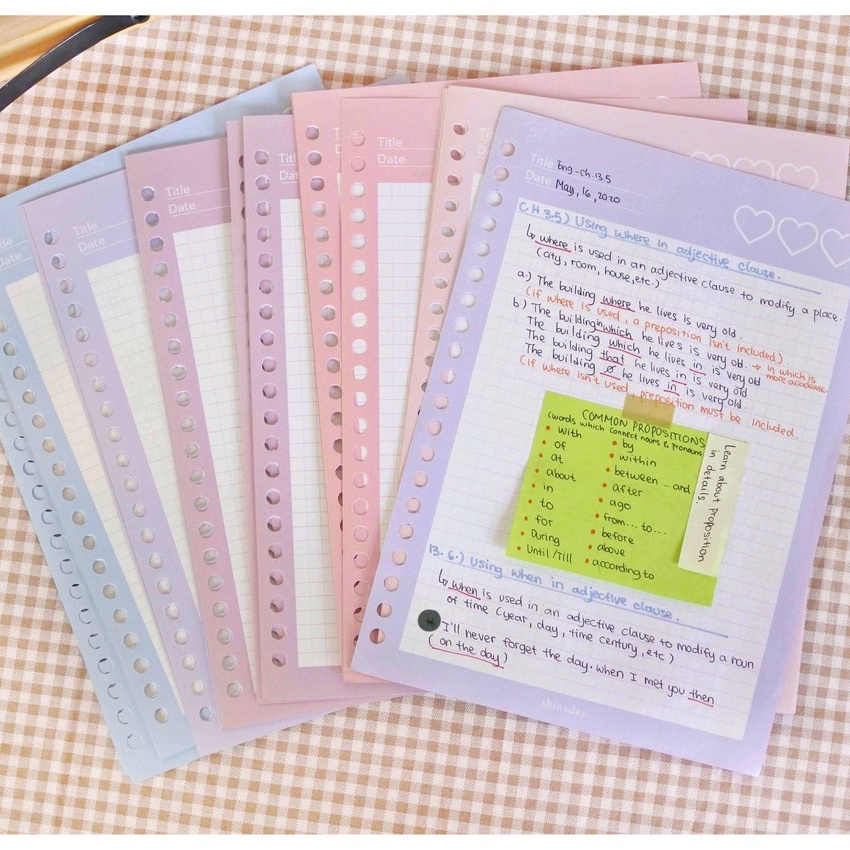 Title Eng-ch.13.5
Date May, 16, 2020
CH 3.5) Using where in adjective clause.
↳ where is used in an adjective clause to modify a place.
(city, room, house, etc.)
a.) The building where he lives is very old.
(if where is used, a preposition isn't included)
b) The building which he lives is very old.
The building which he lives in is very old → in which is more academic
The building that he lives in is very old
The building ø he lives in is very old.
(if where isn't used, preposition must be included.
COMMON PROPOSITIONS
(words which connect nouns & pronouns
• With
• of
• at
• about
• in
• to
• for
• During
• Until /Till
• by
• within
• between .. and
• after
• ago
• from... to...
• before
• above
• according to
Learn about Proposition
in details.
13.6.) Using when in adjective clause.
↳ when is used in an adjective clause to modify a noun
of time (year, day, time century, etc)
* I'll never forget the day. when I met you then
(on the day)
Title
Date
Title
Date
Title
Date
Title
Date